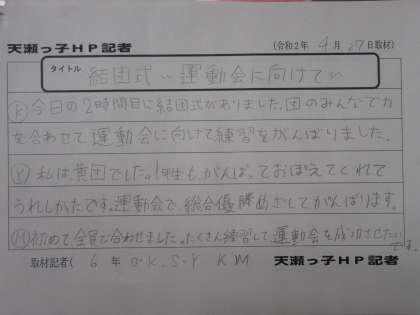 天瀬っ子HP記者 (令和2年 4月 27日取材)
タイトル 結団式~運動会に向けて~
Ⓚ今日の2時間目に結団式がありました。団のみんなで力
を合わせて運動会に向けて練習をがんばりました。
Ⓨ私は、黄団でした。1年生もがんばっておぼえてくれて
うれしかったです。運動会で、総合優勝めざしてがんばります。
Ⓜ初めて、全員で合わせました。たくさん練習して、運動会を成功させたい
です。
取材記者( 6年 O・K、S・Y K M 天瀬っ子HP記者